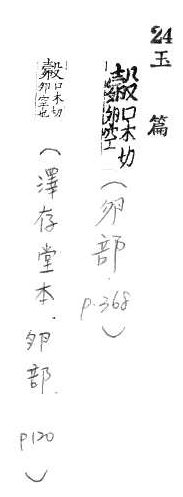 24
玉篇
口木切卵空(卵部.p.368)
口木切卵空也(澤存堂本.卵部.p120)